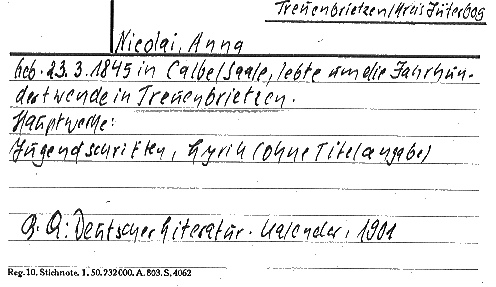 Treuenbrietzen/Kreis Jüterbog
Nicolai, Anna
geb. 23.3.1845 in Calbe/Saale, lebte um die Jahrhun-
dertwende in Treuenbrietzen.
Hauptwerke:
Jugendschriften, Lyrik (ohne Titelangabe)
B.Q: Deutscher Literatur-Kalender, 1901
Reg. 10. Stichnote. 1. 50. 232 000. A. 803. S. 4062